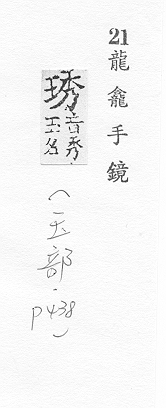 21龍龕手鏡
琇音秀玉名
（玉部·p438）